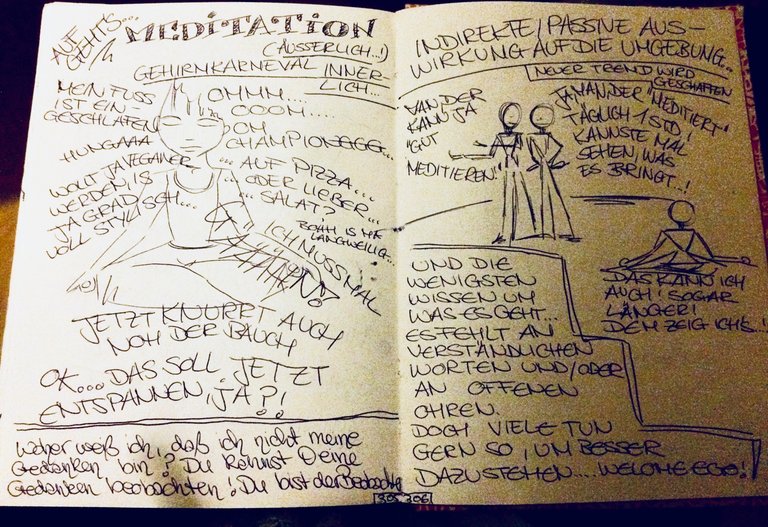 AUF GEHT'S...
MEDITATION
(ÄUSSERLICH..!)
GEHIRNKARNEVAL INNER-
LICH...
MEIN FUSS
IST EIN-
GESCHLAFEN
HUNGAAA
WOLLT JA VEGANER
WERDEN, IS
JA GRAD
VOLL STYLISCH...
OMMM....
OOOM.....
OM
CHAMPIONEEEE...
... AUF PIZZA...
... ODER LIEBER...
... SALAT?
BOAH IS MA
LANGWEILIG...
ICH MUSS MAL
JETZT KNURRT AUCH
NOH DER BAUCH
OK.... DAS SOLL JETZT
ENTSPANNEN, JA?!
Woher weiß ich, daß ich nicht meine
Gedanken bin? Du kannst Deine
Gedanken beobachten! Du bist der Beobachter
305 306
INDIREKTE / PASSIVE AUS-
WIRKUNG AUF DIE UMGEBUNG...
NEUER TREND WIRD
GESCHAFFEN
DER
KANN JA
"GUT
MEDITIEREN"
JAMAN, DER "MEDITIERT"
TÄGLICH 1 STD!
KANNSTE MAL
SEHEN, WAS
ES BRINGT..!
DAS KANN ICH
AUCH! SOGAR
LÄNGER!
DEM ZEIG ICH'S..!
UND DIE
WENIGSTEN
WISSEN UM
WAS ES GEHT...
ES FEHLT AN
VERSTÄNDLICHEN
WORTEN UND/ODER
AN OFFENEN
OHREN.
DOCH VIELE TUN
GERN SO, UM BESSER
DAZUSTEHEN.... WELCHE EGO!